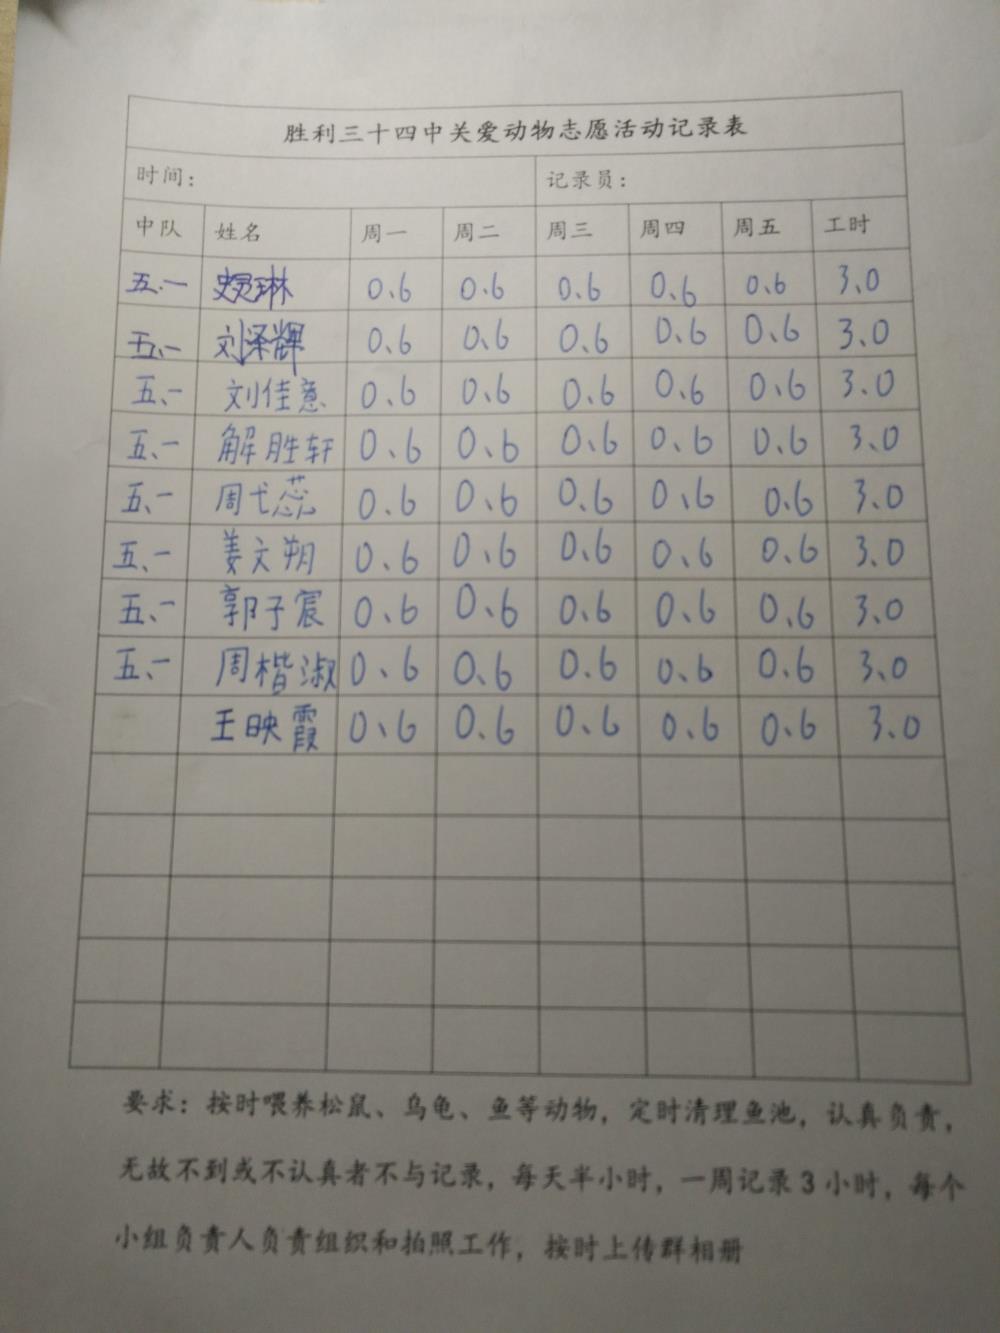 胜利三十四中关爱动物志愿活动记录表
时间： 记录员：
中队 姓名 周一 周二 周三 周四 周五 工时
五、一 0.6 0.6 0.6 0.6 0.6 3.0
五、一 刘泽辉 0.6 0.6 0.6 0.6 0.6 3.0
五、一 刘佳意 0.6 0.6 0.6 0.6 0.6 3.0
五、一 解胜轩 0.6 0.6 0.6 0.6 0.6 3.0
五、一 周弋蕊 0.6 0.6 0.6 0.6 0.6 3.0
五、一 姜文朔 0.6 0.6 0.6 0.6 0.6 3.0
五、一 郭子宸 0.6 0.6 0.6 0.6 0.6 3.0
五、一 周楷淑 0.6 0.6 0.6 0.6 0.6 3.0
王映霞 0.6 0.6 0.6 0.6 0.6 3.0
要求：按时喂养松鼠、乌龟、鱼等动物，定时清理鱼池，认真负责，
无故不到或不认真者不与记录，每天半小时，一周记录3小时，每个
小组负责人负责组织和拍照工作，按时上传群相册